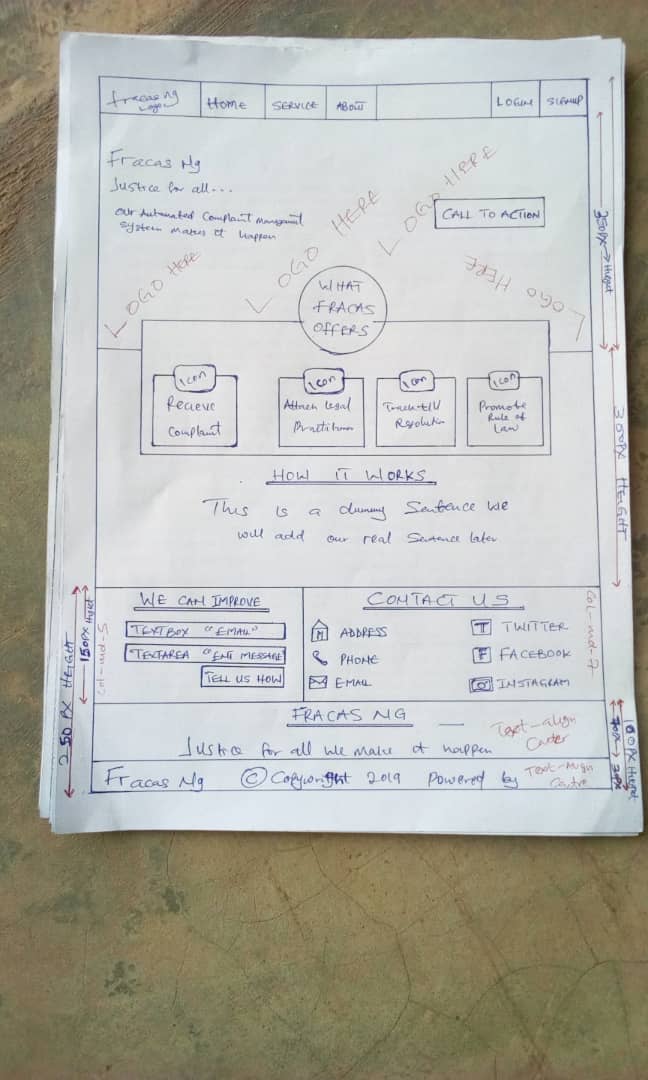 Fracas ng
Logo
HOME
SERVICE
ABOUT
LOGIN
SIGNUP
Fracas Ng
Justice for all...
Our Automated Complaint Management
System makes it happen
CALL TO ACTION
LOGO HERE
LOGO HERE
LOGO HERE
LOGO HERE
350PX → Height
WHAT
FRACAS
OFFERS
icon
Recieve
Complaint
icon
Attach Legal
Practitioner
icon
Resolution
icon
Promote
Rule of
Law
350PX HEIGHT
HOW IT WORKS
This is a dummy Sentence we
will add our real Sentence later
250 PX HEIGHT
150PX Height
col-md-5
WE CAN IMPROVE
TEXTBOX "EMAIL"
TEXTAREA MESSAGE"
TELL US HOW
CONTACT US
M ADDRESS
PHONE
EMAIL
T TWITTER
F FACEBOOK
INSTAGRAM
col-md-7
FRACAS NG
Justice for all we make it happen
Text-align
Center
Fracas Ng © Copyright 2019 Powered by
Text-Align
Centre
100PX Height